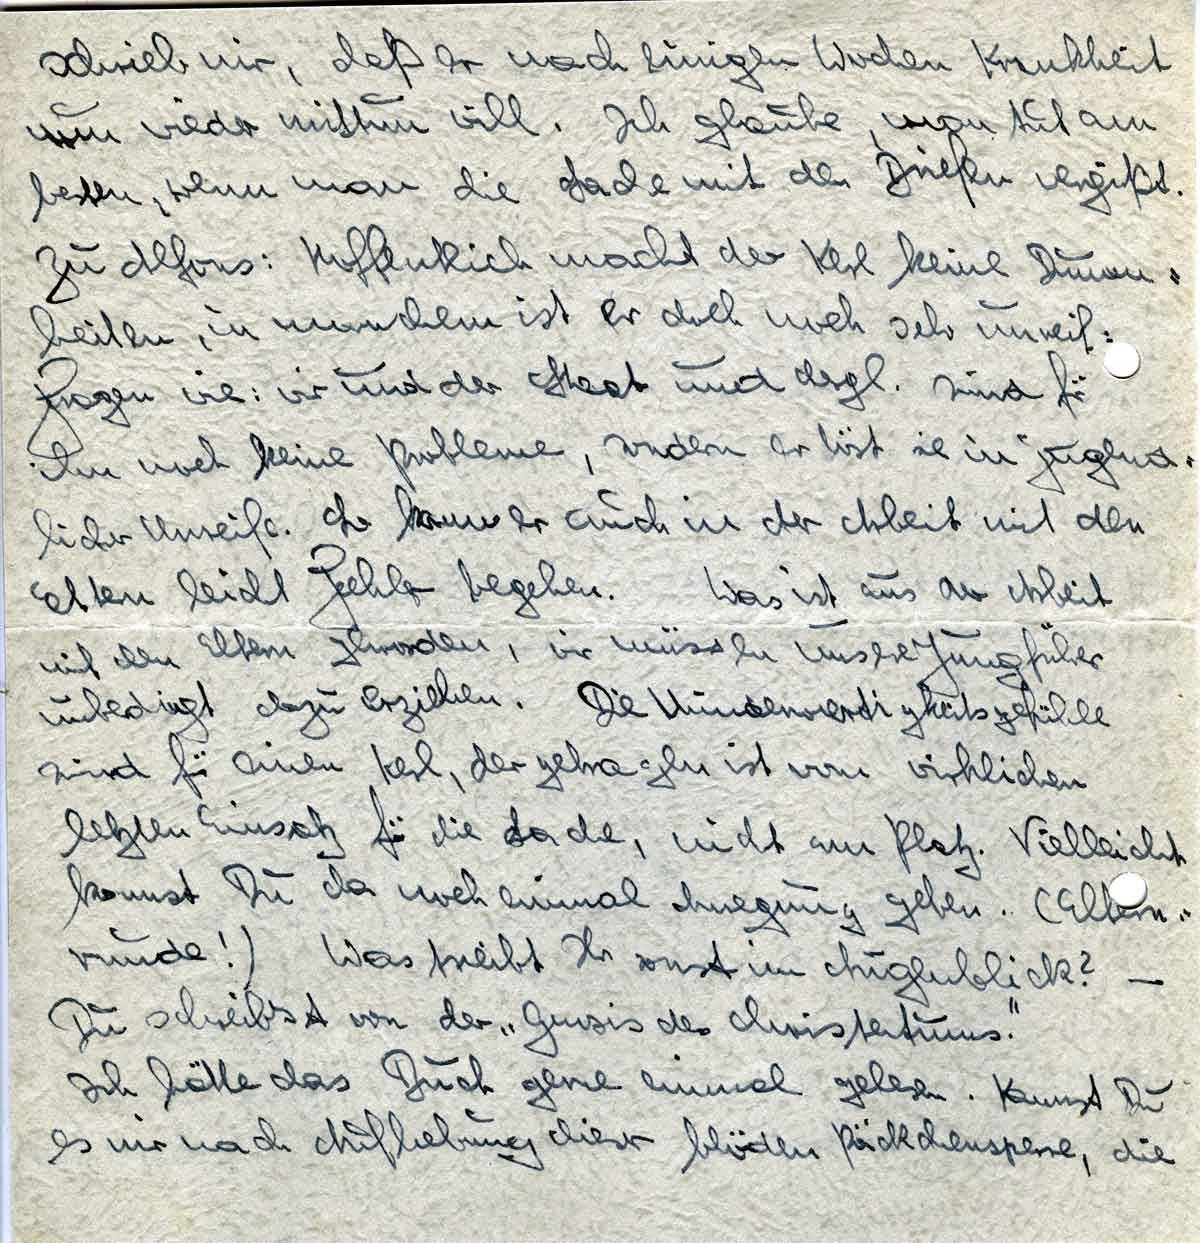 schrieb mir, daß er nach einigen Wochen Krankheit
nun wieder mittun will. Ich glaube, man tut am
besten, wenn man die Sache mit den Briefen vergißt.
Zu Alfons: Hoffentlich macht der Kerl keine Dumm-
heiten, in manchem ist er doch noch sehr unreif:
Fragen wie: wir und der Staat und dergl. sind für
ihn noch keine Probleme, sondern er löst sie in jugend-
licher Unreife. So kann er auch in der Arbeit mit den
Eltern leicht Fehler begehen. Was ist aus der Arbeit
mit den Eltern geworden, wir müssen unsere Jungführer
unbedingt dazu erziehen. Die Minderwertigkeitsgefühle
sind für einen Kerl, der getragen ist vom wirklichen
letzten Einsatz für die Sache, nicht am Platz. Vielleicht
kannst Du da noch einmal Anregung geben. (Eltern-
runde!) Was treibt Ihr sonst im Augenblick? —
Du schreibst von der „Genesis des Christentums."
Ich hätte das Buch gerne einmal gelesen. Kannst Du
es mir nach Aufhebung dieser blöden Päckchensperre, die